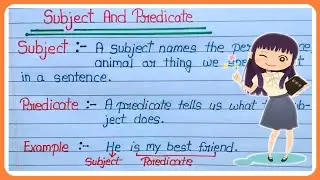 Subject And Predicate
Subject :- A subject names the
animal or thing we
in a sentence.
Predicate :- A predicate tells us what
ject does.
Example :- He is my best friend.
Subject Predicate